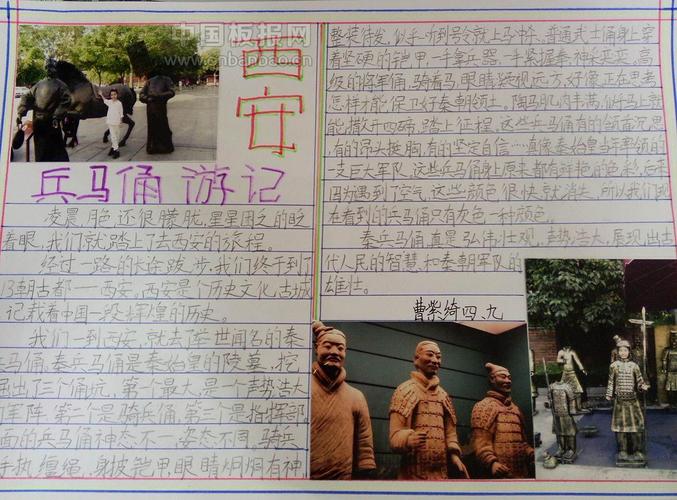 中国板报网
www.cnbanbao.cn
西安
兵马俑 游记
凌晨,月色还很朦胧,星星困乏的眨
着眼,我们就踏上了去西安的旅程。
经过一路的长途跋步,我们终于到了
13朝古都——西安。西安是个历史文化古城
记载着中国一段辉煌的历史。
我们一到西安,就去了举世闻名的秦
兵马俑。秦兵马俑是秦始皇的陵墓,挖
掘出了三个俑坑,第一个最大,是一个声势浩大
的军阵,第二个是骑兵俑,第三个是指挥部
面的兵马俑神态不一,姿态不同。骑兵
手执缰绳,身披铠甲,眼睛炯炯有神
整装待发,似乎一听到号令就上马冲杀。普通武士俑身上穿
着坚硬的铠甲,一手拿兵器,一手紧握拳,神采奕奕。高
级的将军俑,骑着马,眼睛凝视远方,好像正在思考
怎样才能保卫好秦朝领土。陶马肌肉丰满,似乎马上就
能撒开四蹄,踏上征程。这些兵马俑有的颔首沉思
,有的昂头挺胸,有的坚定自信……真像秦始皇当年率领的
一支巨大军队。这些兵马俑身上原来都有鲜艳的色彩,后来
因为遇到了空气,这些颜色很快就消失,所以我们现
在看到的兵马俑只有灰色一种颜色。
秦兵马俑,真是弘伟壮观,声势浩大,展现出古
代人民的智慧和秦朝军队的
雄壮。
曹紫绮四、九